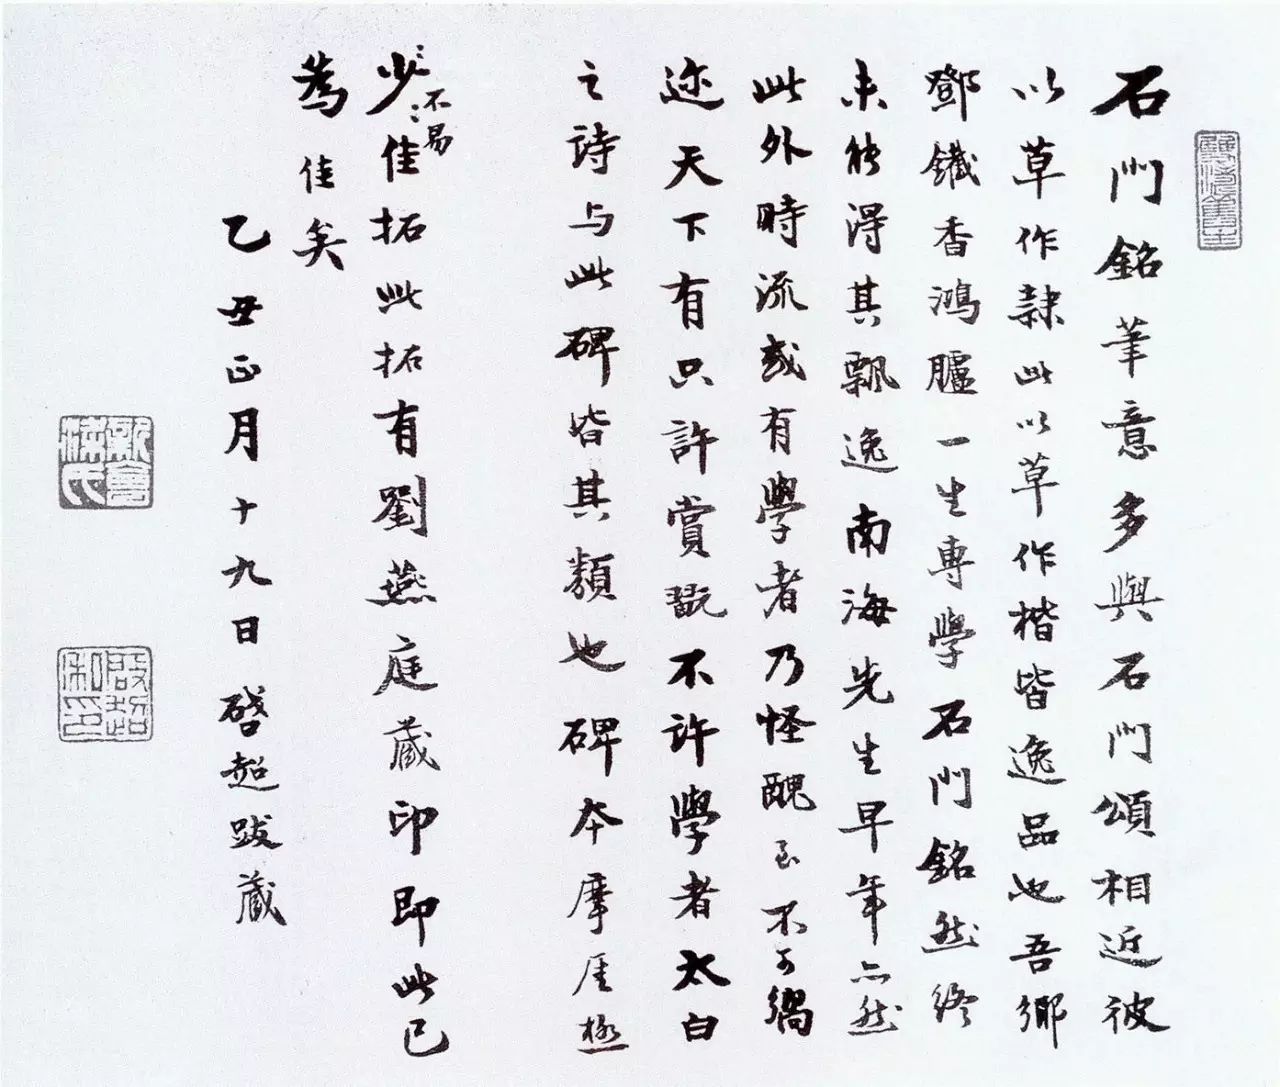 石門銘筆意多與石門頌相近彼
以草作隸此以草作楷皆逸品也吾鄉
鄧鐵香鴻臚一生專學石門銘然終
未能得其飄逸南海先生早年亦然
此外時流或有學者乃怪醜至不可嚮
迩天下有只許賞翫不許學者太白
之詩与此碑皆其類也碑本摩厓極
不易
少佳拓此拓有劉燕庭藏印即此已
為佳矣
乙丑正月十九日啓超跋藏
新會梁氏
啟超私印